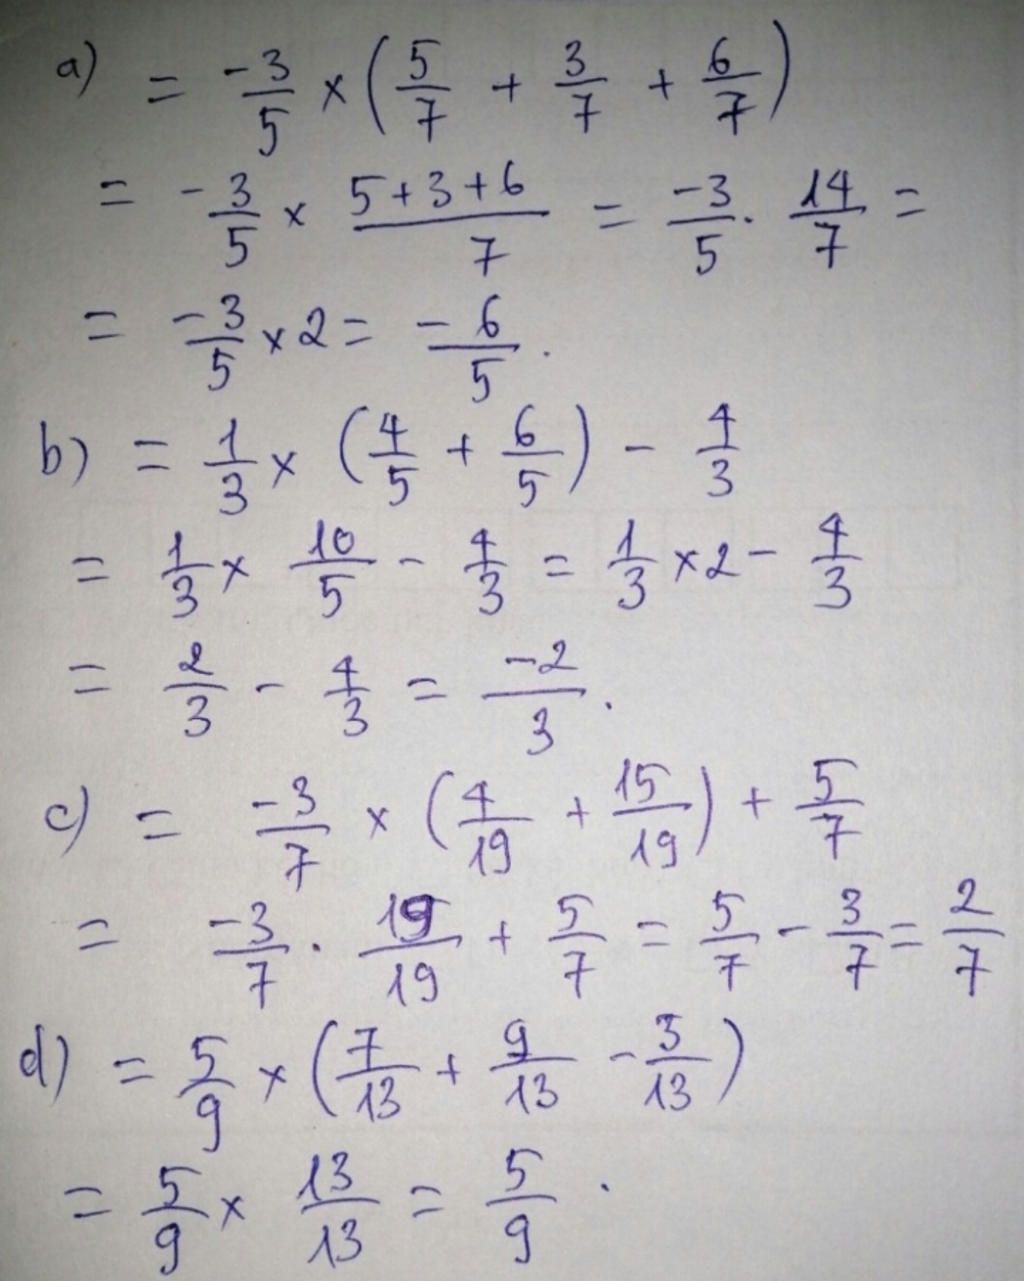 a) = -3/5 × (5/7 + 3/7 + 6/7)
= -3/5 × (5+3+6)/7 = -3/5 . 14/7 =
= -3/5 × 2 = -6/5 .
b) = 1/3 × (4/5 + 6/5) - 4/3
= 1/3 × 10/5 - 4/3 = 1/3 × 2 - 4/3
= 2/3 - 4/3 = -2/3 .
c) = -3/7 × (4/19 + 15/19) + 5/7
= -3/7 . 19/19 + 5/7 = 5/7 - 3/7 = 2/7
d) = 5/9 × (7/13 + 9/13 - 3/13)
= 5/9 × 13/13 = 5/9 .